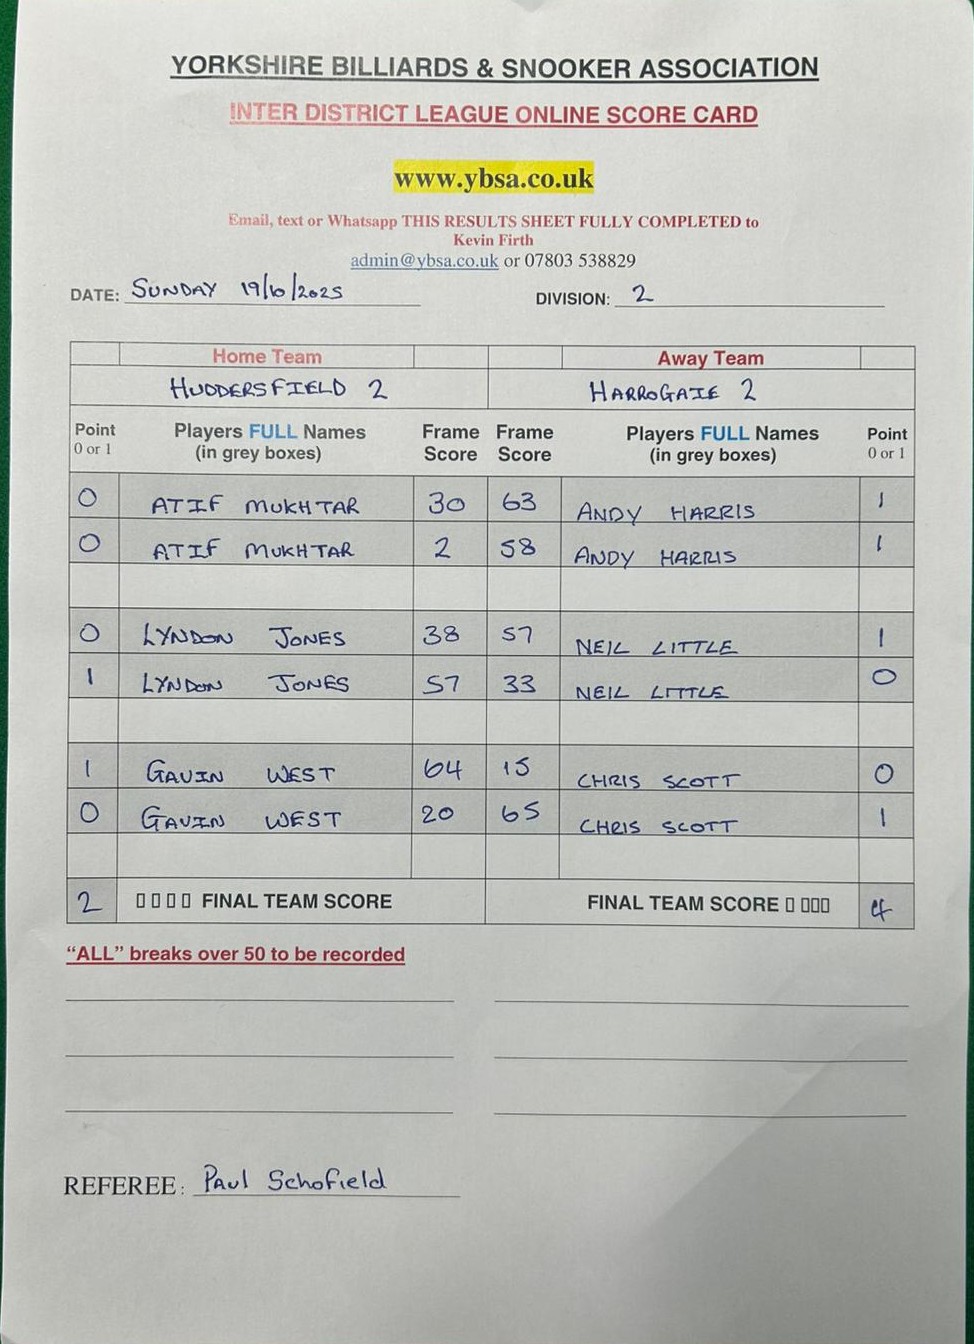 YORKSHIRE BILLIARDS & SNOOKER ASSOCIATION
INTER DISTRICT LEAGUE ONLINE SCORE CARD
www.ybsa.co.uk
Email, text or Whatsapp THIS RESULTS SHEET FULLY COMPLETED to
Kevin Firth
admin@ybsa.co.uk or 07803 538829
DATE: SUNDAY 19/10/2025 DIVISION: 2
Home Team Away Team
HUDDERSFIELD 2 HARROGATE 2
Point Players FULL Names Frame Frame Players FULL Names Point
0 or 1 (in grey boxes) Score Score (in grey boxes) 0 or 1
0 ATIF MUKHTAR 30 63 ANDY HARRIS 1
0 ATIF MUKHTAR 2 58 ANDY HARRIS 1
0 LYNDON JONES 38 57 NEIL LITTLE 1
1 LYNDON JONES 57 33 NEIL LITTLE 0
1 GAVIN WEST 64 15 CHRIS SCOTT 0
0 GAVIN WEST 20 65 CHRIS SCOTT 1
2 FINAL TEAM SCORE FINAL TEAM SCORE 4
“ALL” breaks over 50 to be recorded
REFEREE: Paul Schofield